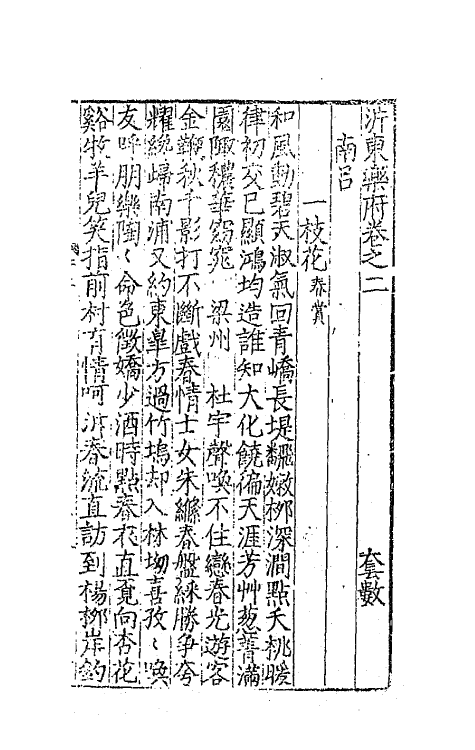 沜東樂府卷之二 套數
南呂
一枝花 春賞
和風動碧天淑氣回青嶠長堤飜嫩柳深澗點夭桃暖
律初交已顯鴻均造誰知大化饒徧天涯芳艸葱菁滿
園陬穠華窈窕 梁州 杜宇聲喚不住戀春光遊客
金鞭秋千影打不斷戲春情士女朱繩春盤綵勝爭夸
耀纔歸南浦又約東皐方過竹塢却入林坳喜孜〻喚
友呼朋樂陶〻命色徵嬌少酒時點春衣直覔向杏花
谿牧羊兒笑指前村有情呵泝春流直訪到楊柳岸釣